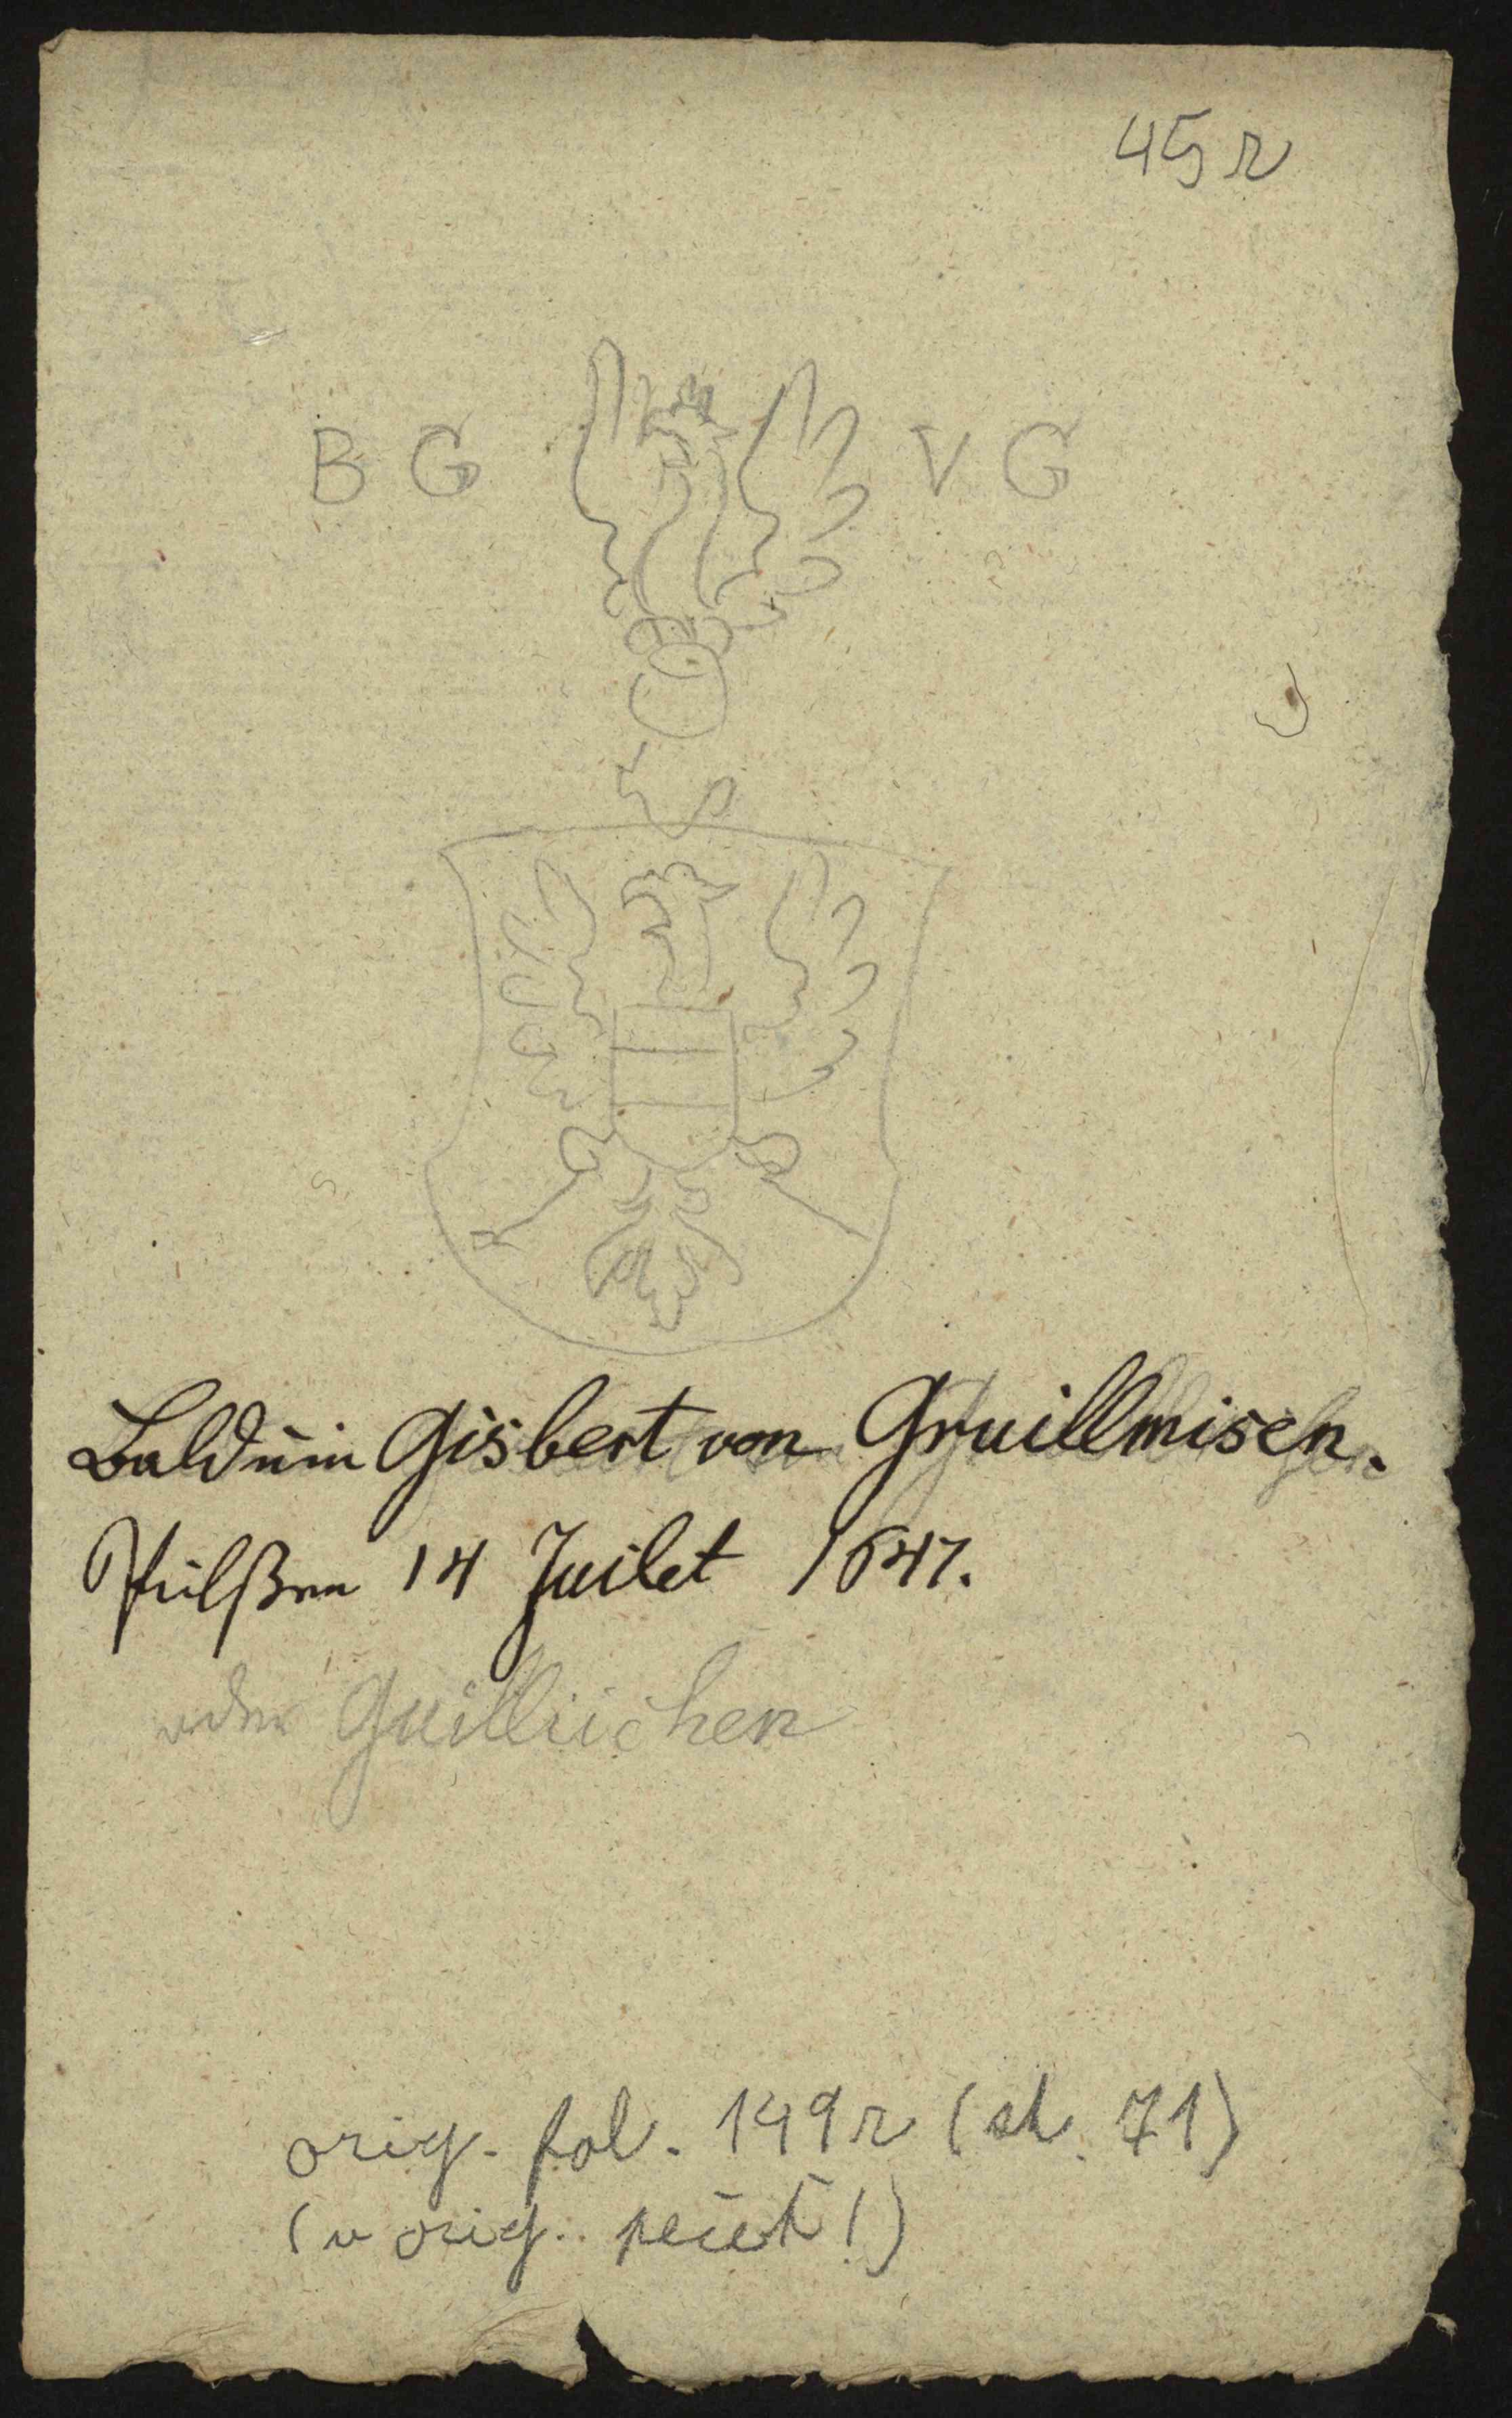 45r
B G V G
Balduin Gisbert von Gruillmisen.
14 Juilet 1647.
oder Guilliichen
orig. fol. 149r (st. 71)
(v orig. pečeť!)